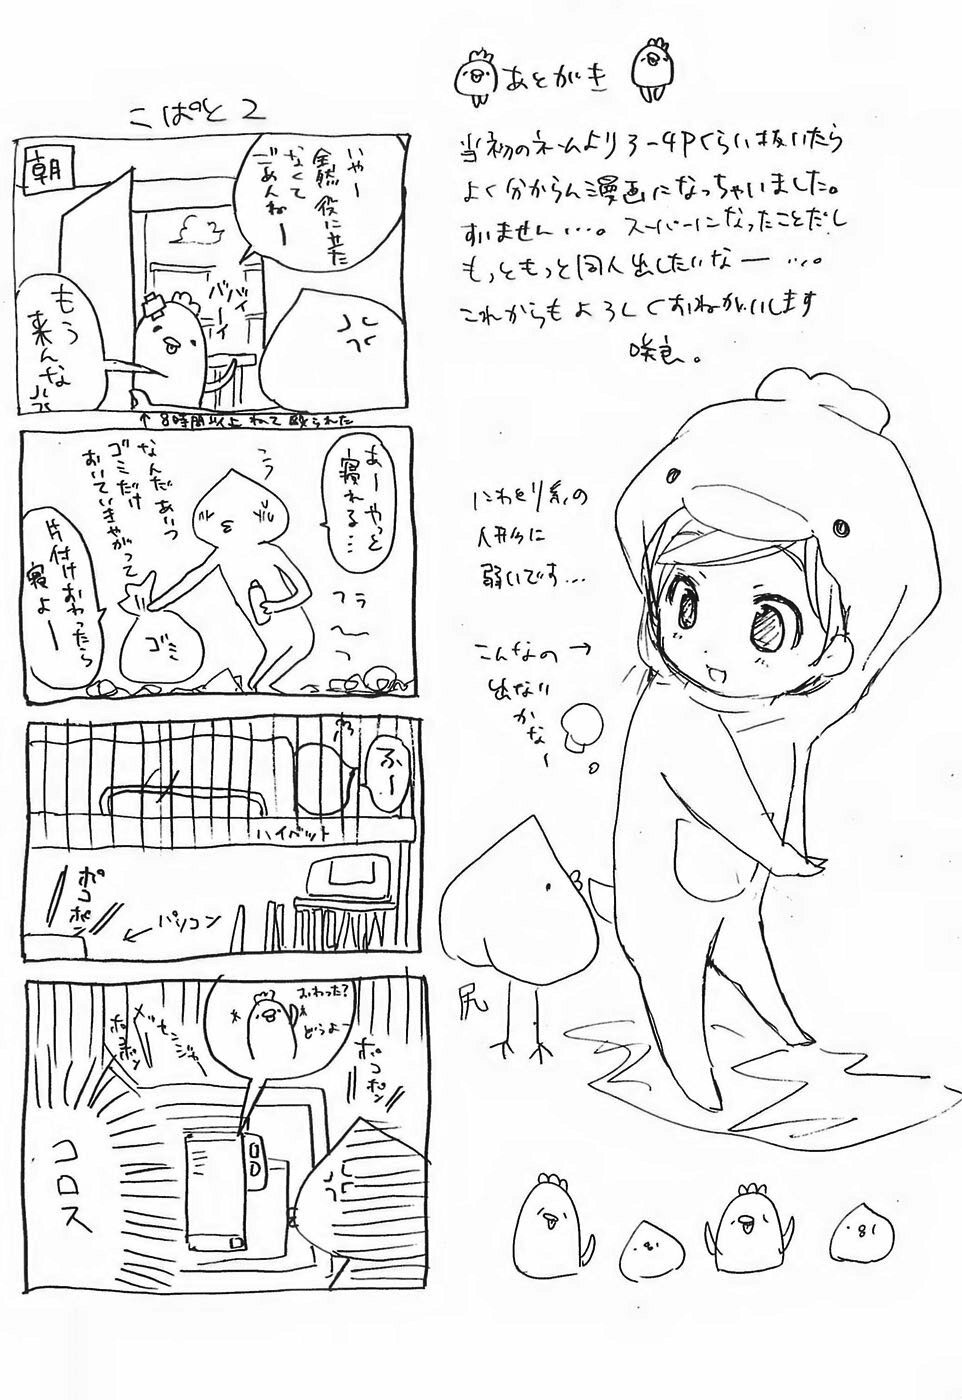 こぱと2
朝
いやー
全然役に立た
なくて
ごめんねー
バイ
バーイ
もう
来んな
↑8時間以上ねてて殴られた
あーやっと
寝れる…
なんだあいつ
ゴミだけ
おいていきやがって
片付けおわったら
寝よー
ゴミ
フラ
ふー
ハイベット
ポコ
ポン
←パソコン
おわった?
どうよー
メッセンジャ
ポコ
ポン
ポコ
ポン
コロス
あとがき
当初のネームより3-4Pくらい抜いたら
よく分からん漫画になっちゃいました。
すいません…。スーパーになったことだし
もっともっと同人出したいなー…。
これからもよろしくおねがいします
咲良。
にわとり系の
人形に
弱いです…
こんなの→
出ない
かなー
尻